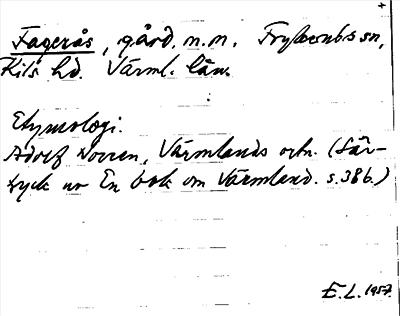 Fagerås, gård. m.m. Fryksände sn,
Kils hd. Värml. län.
Etymologi.
Adolf Noreen, Värmlands ortn. (Sär-
tryck ur En bok om Värmland. s. 38 f.)
E. L. 1957.